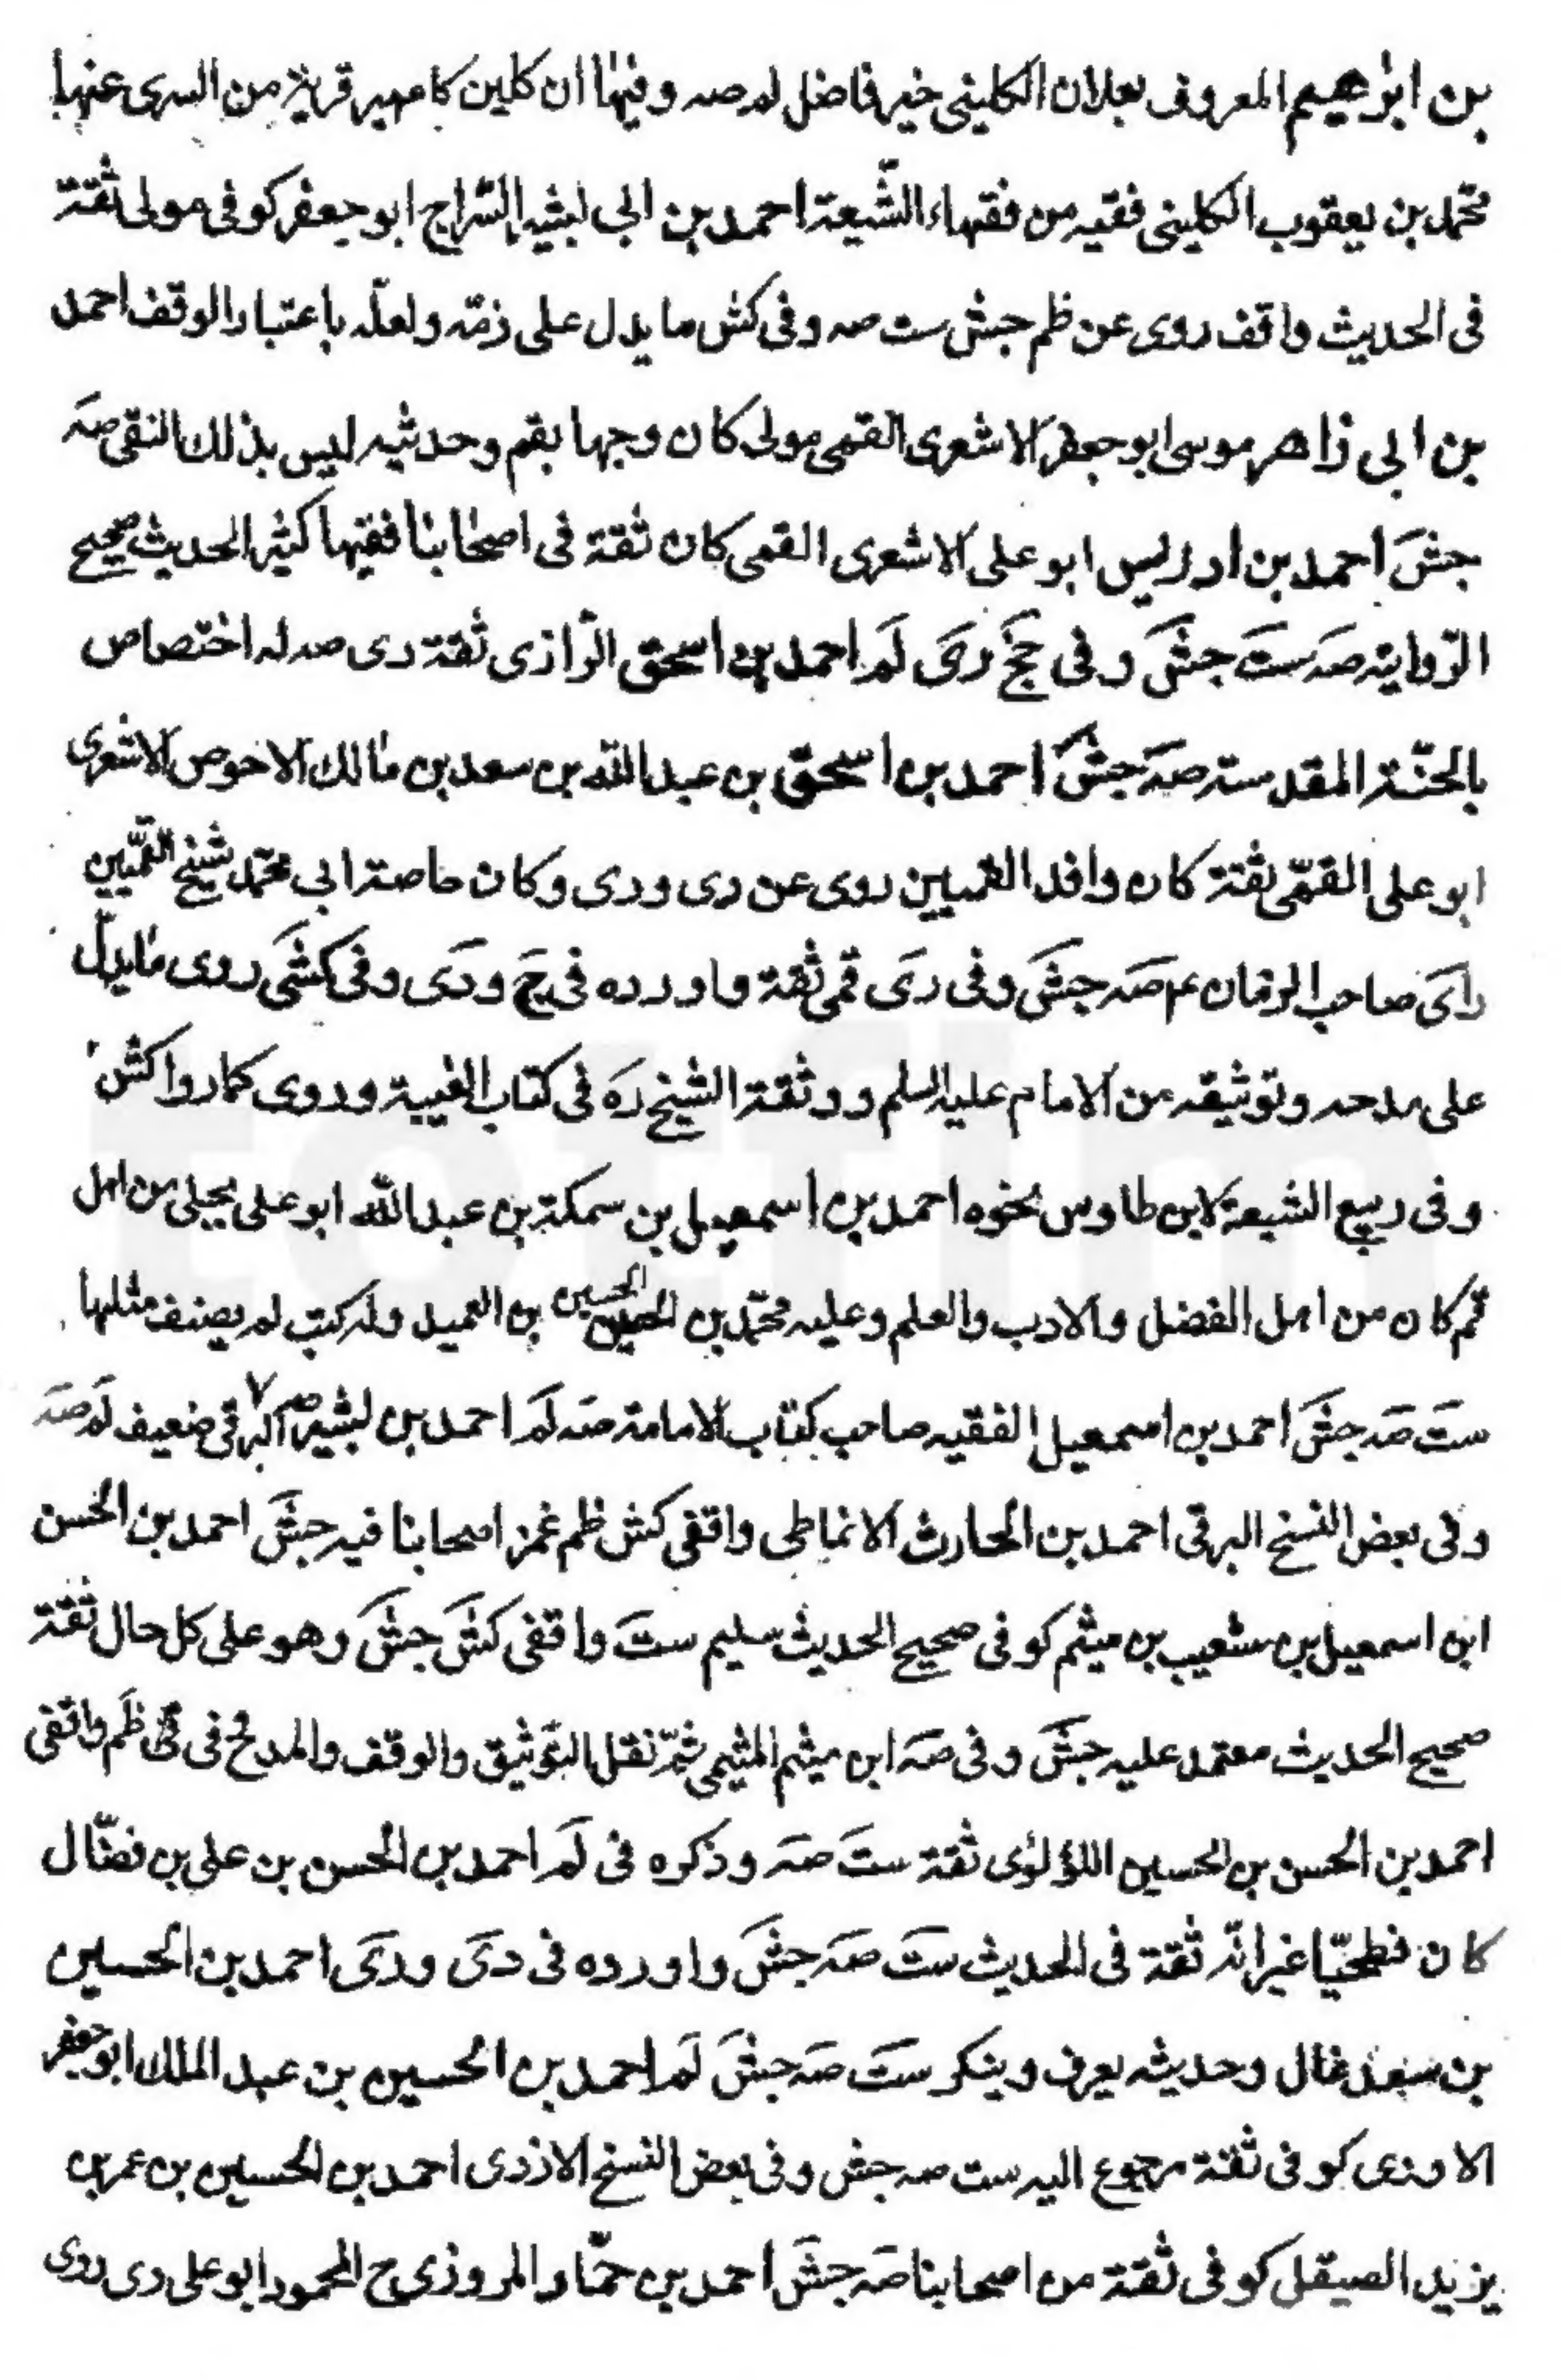 بن ابرهيم المعروف بعلان الكلينى خير فاضل لم صه وفيها ان كلين كامير قرية من الرى عنها
محمد بن يعقوب الكلينى فقيه من فقهاء الشيعة احمد بن ابى بشير السراج ابو جعفر كوفى مولى ثقة
فى الحديث واقف روى عن ظم جش ست صه وفى كش ما يدل على ذمه ولعله باعتبار الوقف احمد
بن ابى زاهر موسى ابو جعفر الاشعرى القمى مولى كان وجها بقم وحديثه ليس بذلك النقى صه
جش احمد بن ادريس ابو على الاشعرى القمى كان ثقة فى اصحابنا فقيها كثير الحديث صحيح
الرواية صه ست جش وفى جخ رى لم احمد بن اسحق الرازى ثقة دى صه له اختصاص
بالجنة المقدسة صه جش احمد بن اسحق بن عبد الله بن سعد بن مالك الاحوص الاشعرى
ابو على القمى ثقة كان وافد القميين روى عن دى ورى وكان خاصة ابى محمد شيخ القميين
راى صاحب الزمان ع م صه جش وفى رى قمى ثقة واورده فى ج ودى وفى كشى روى ما يدل
على مدحه وتوثيقه من الامام عليه السلم ووثقة الشيخ ره فى كتاب الغيبة وروى كما روا كش
وفى ربيع الشيعة لابن طاوس نحوه احمد بن اسمعيل بن سمكة بن عبد الله ابو على بجلى من اهل
قم كان من اهل الفضل والادب والعلم وعليه محمد بن الحسين الحسين بن العميد وله كتب لم يصنف مثلها
ست صه جش احمد بن اسمعيل الفقيه صاحب كتاب الامامة صه لم احمد بن بشير البرقى ضعيف لم صه
وفى بعض النسخ البرقى احمد بن الحارث الانماطى واقفى كش ظم غمز اصحابنا فيه جش احمد بن الحسن
ابن اسمعيل بن شعيب بن ميثم كوفى صحيح الحديث سليم ست واقفى كش جش وهو على كل حال ثقة
صحيح الحديث معتمد عليه جش وفى صه ابن ميثم الميثمى ثم نقل التوثيق والوقف والمدح فى ظم واقفى
احمد بن الحسن بن الحسين اللؤلؤى ثقة ست صه وذكره فى لم احمد بن الحسن بن على بن فضال
كان فطحيا غير انه ثقة فى الحديث ست صه جش واورده فى دى ورى احمد بن الحسين
بن سعد غال وحديثه يعرف وينكر ست صه جش لم احمد بن الحسين بن عبد الملك ابو جعفر
الاودى كوفى ثقة مرجوع اليه ست صه جش وفى بعض النسخ الازدى احمد بن الحسين بن عمر بن
يزيد الصيقل كوفى ثقة من اصحابنا صه جش احمد بن حماد المروزى ج المحمود ابو على دى روى